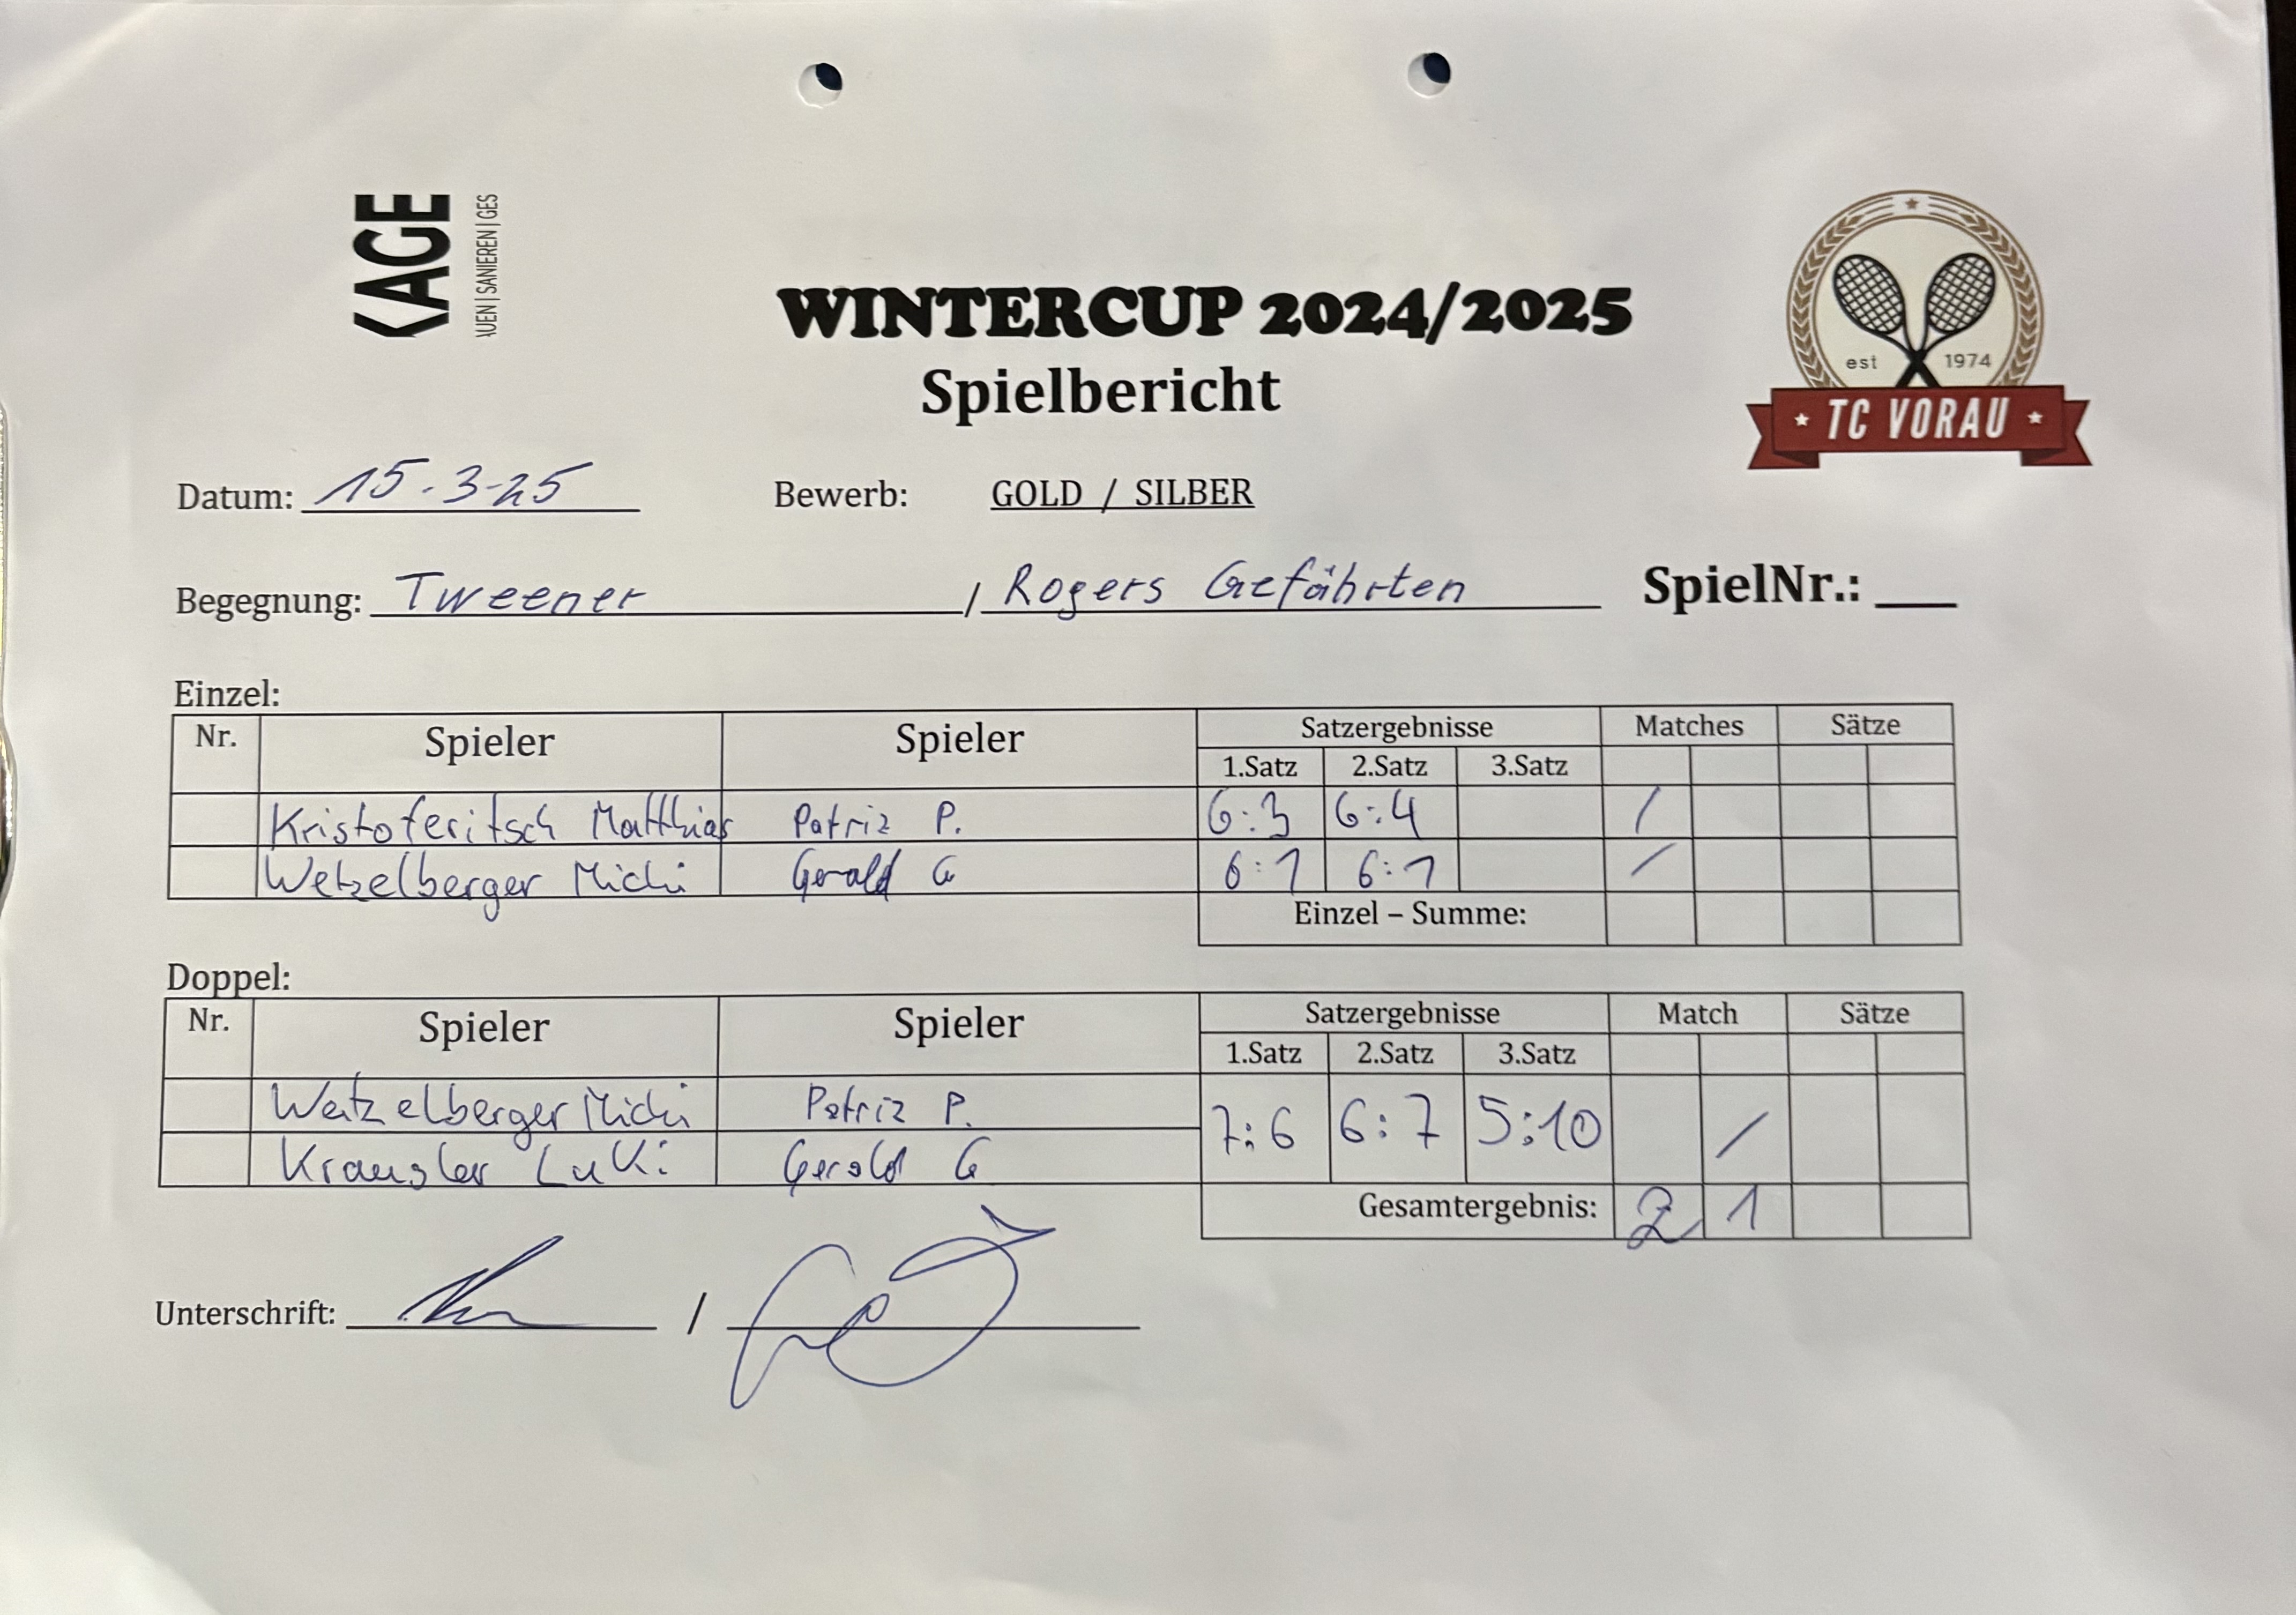 KAGE
AUEN | SANIEREN | GES
WINTERCUP 2024/2025
Spielbericht
est 1974
TC VORAU
Datum: 15.3-25 Bewerb: GOLD / SILBER
Begegnung: Tweener / Rogers Gefährten SpielNr.: ___
Einzel:
Nr. Spieler Spieler Satzergebnisse Matches Sätze
1.Satz 2.Satz 3.Satz
Kristoferitsch Matthias Patriz P. 6:3 6:4 /
Wetzelberger Michi Gerald G 6:1 6:1 /
Einzel – Summe:
Doppel:
Nr. Spieler Spieler Satzergebnisse Match Sätze
1.Satz 2.Satz 3.Satz
Wetzelberger Michi Patriz P. 7:6 6:7 5:10 /
Krausler Luki Gerald G
Gesamtergebnis: 2 1
Unterschrift: /